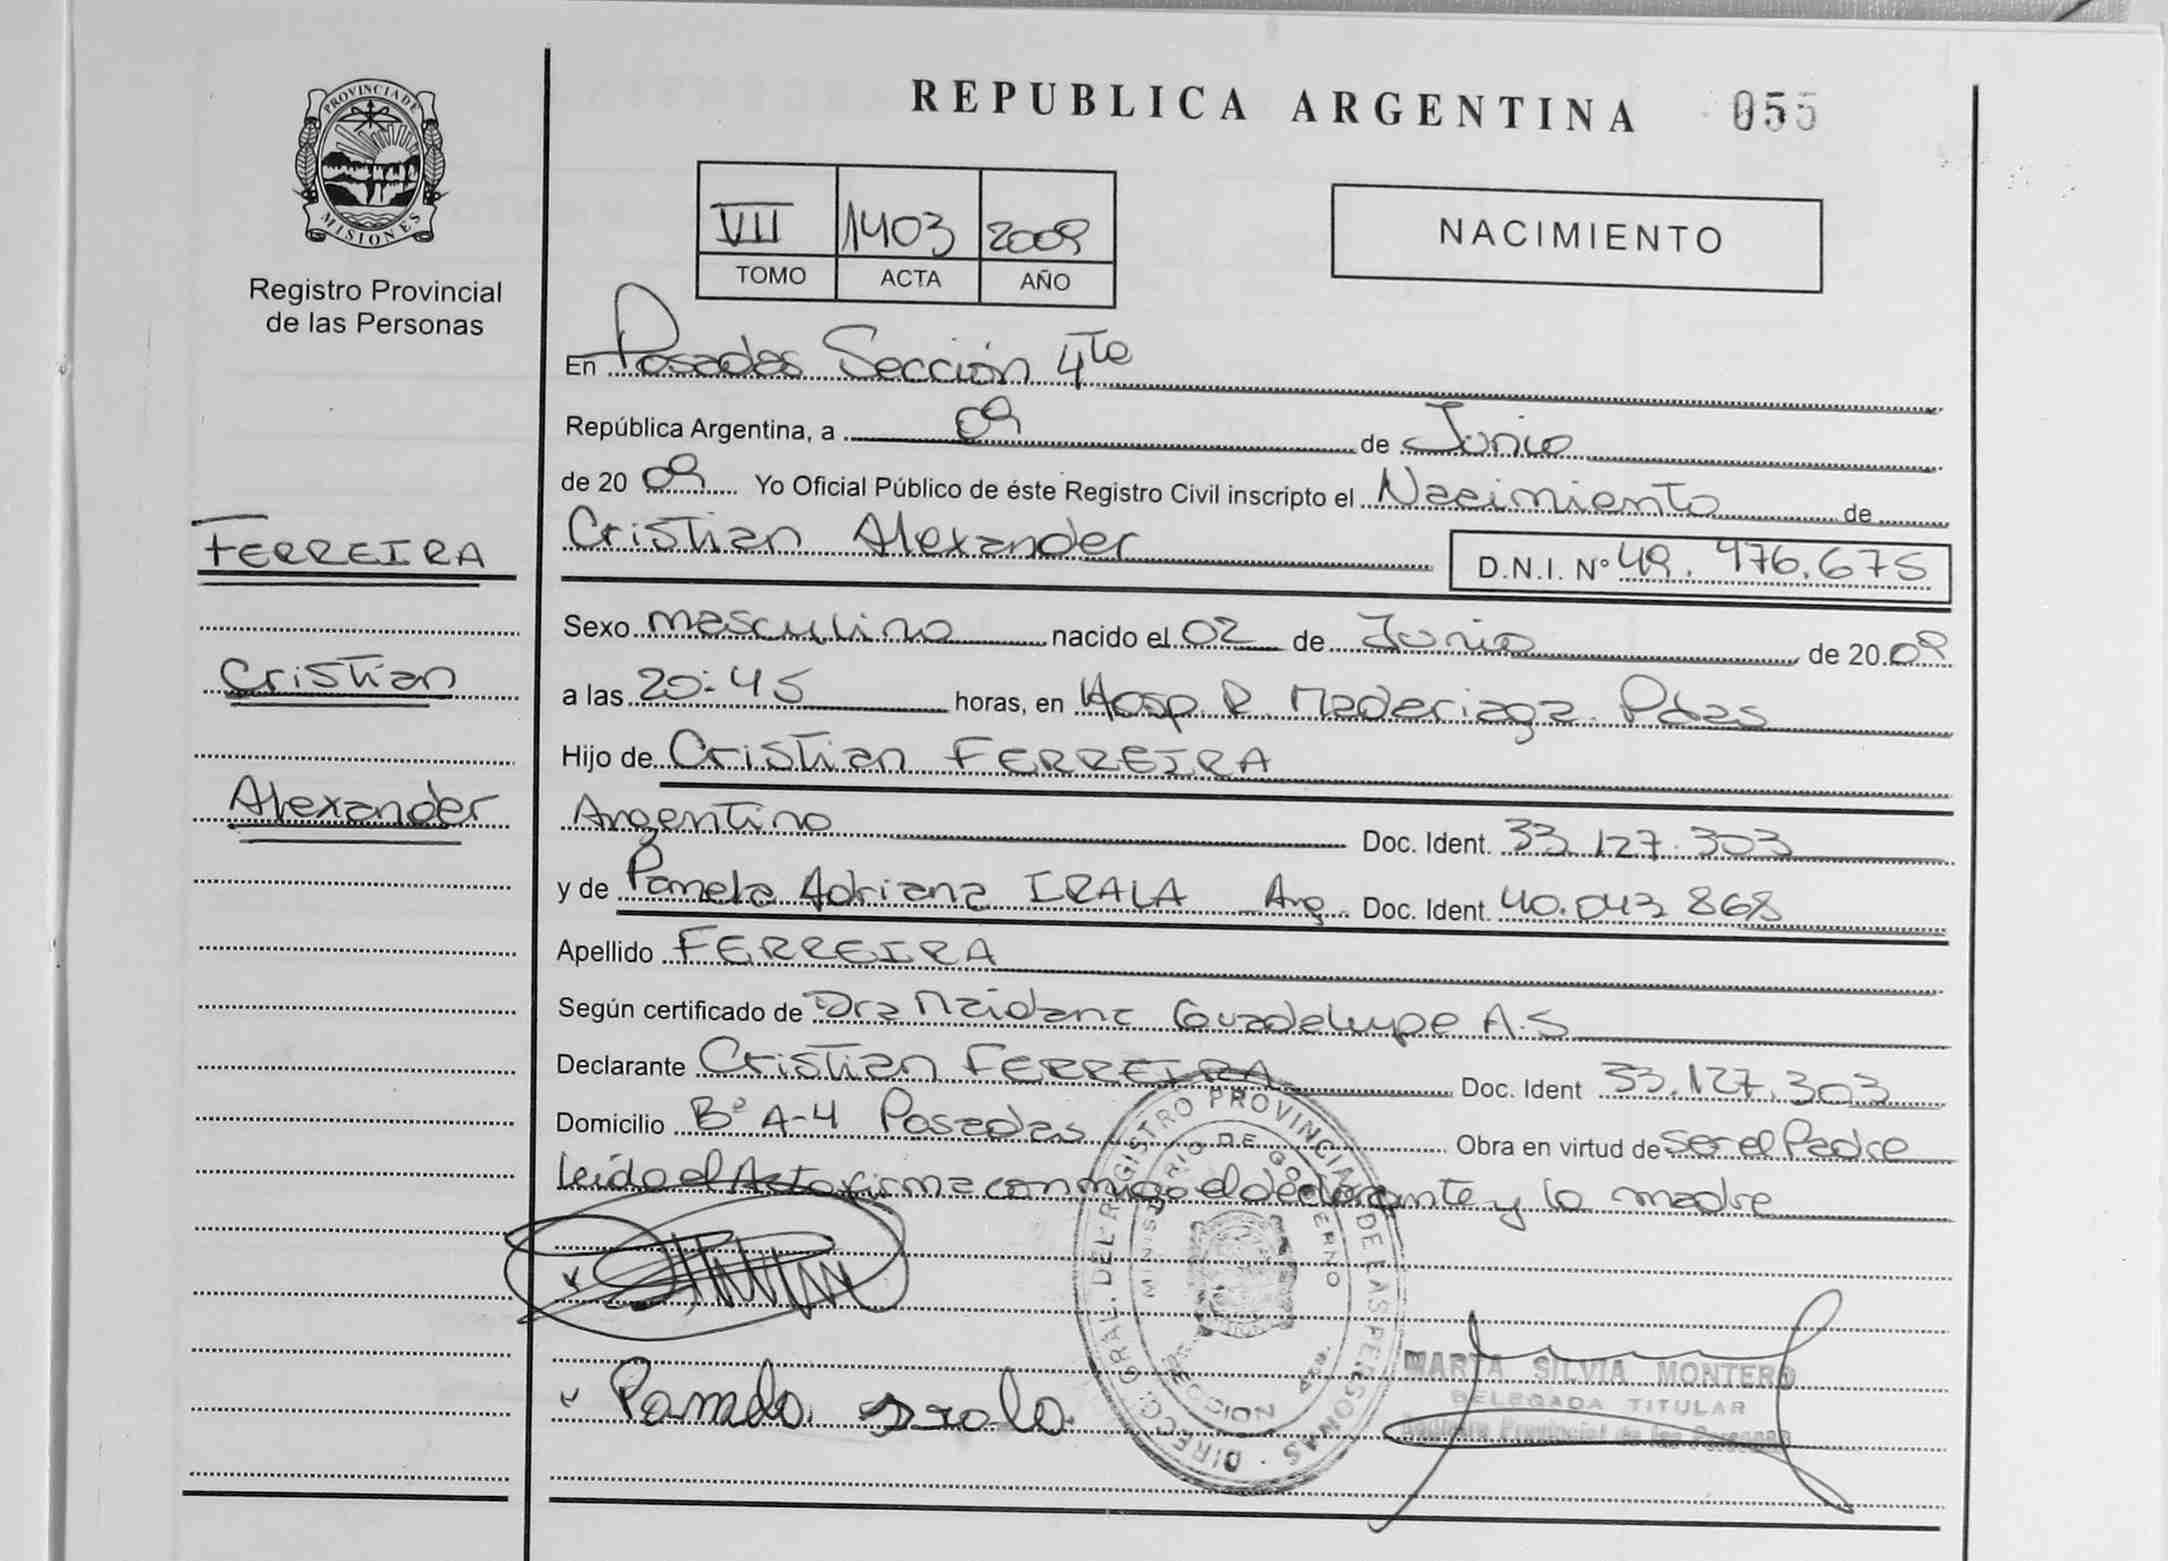 REPUBLICA ARGENTINA 055
PROVINCIA DE MISIONES
Registro Provincial
de las Personas
VII 1403 2009
TOMO ACTA AÑO
NACIMIENTO
En Posadas Sección 4ta
República Argentina, a 09 de Junio
de 2009 Yo Oficial Público de éste Registro Civil inscripto el Nacimiento de
Cristian Alexander D.N.I. Nº 49.976.675
FERREIRA
Cristian
Alexander
Sexo masculino nacido el 02 de Junio de 20.09
a las 20:45 horas, en Hosp. R. Maderiaga. Pdas
Hijo de Cristian FERREIRA
Argentino Doc. Ident. 33.127.303
y de Pamela Adriana IRALA Arg. Doc. Ident. 40.043.868
Apellido FERREIRA
Según certificado de Dra Maidana Guadalupe A.S
Declarante Cristian FERREIRA Doc. Ident 33.127.303
Domicilio Bº A-4 Posadas Obra en virtud de ser el Padre
Leído el Acta firma conmigo el declarante y la madre
DIRECC. GRAL. DEL REGISTRO PROVINCIAL DE LAS PERSONAS
MINISTERIO DE GOBIERNO
Pamela irala
MARTA SILVIA MONTERO
DELEGADA TITULAR
Registro Provincial de las Personas